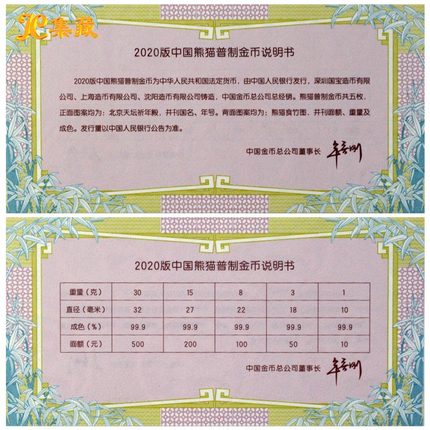 JC集藏
2020版中国熊猫普制金币说明书
2020版中国熊猫普制金币为中华人民共和国法定货币，由中国人民银行发行，深圳国宝造币有限
公司、上海造币有限公司、沈阳造币有限公司铸造，中国金币总公司总经销。熊猫普制金币共五枚，
正面图案均为：北京天坛祈年殿，并刊国名、年号。背面图案均为：熊猫食竹图，并刊面额、重量及
成色。发行量以中国人民银行公告为准。
中国金币总公司董事长
2020版中国熊猫普制金币说明书
重量（克） 30 15 8 3 1
直径（毫米） 32 27 22 18 10
成色（%） 99.9 99.9 99.9 99.9 99.9
面额（元） 500 200 100 50 10
中国金币总公司董事长